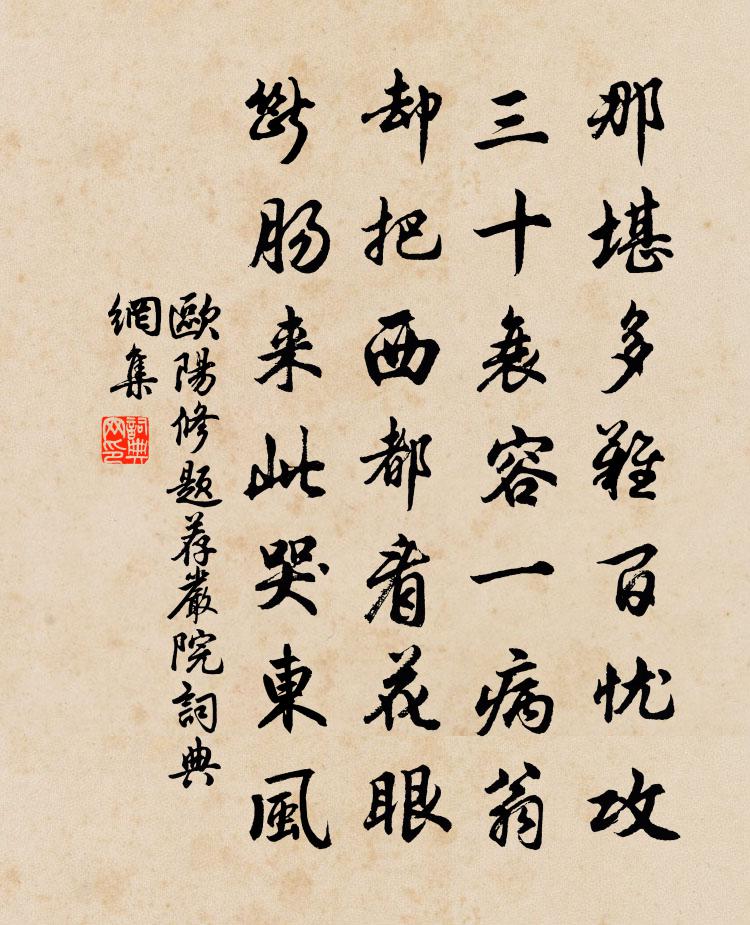 那堪多難百忧攻
三十衰容一病翁
却把西都看花眼
斷肠来此哭東風
歐陽修题荐嚴院詞典
網集
詞典
网印